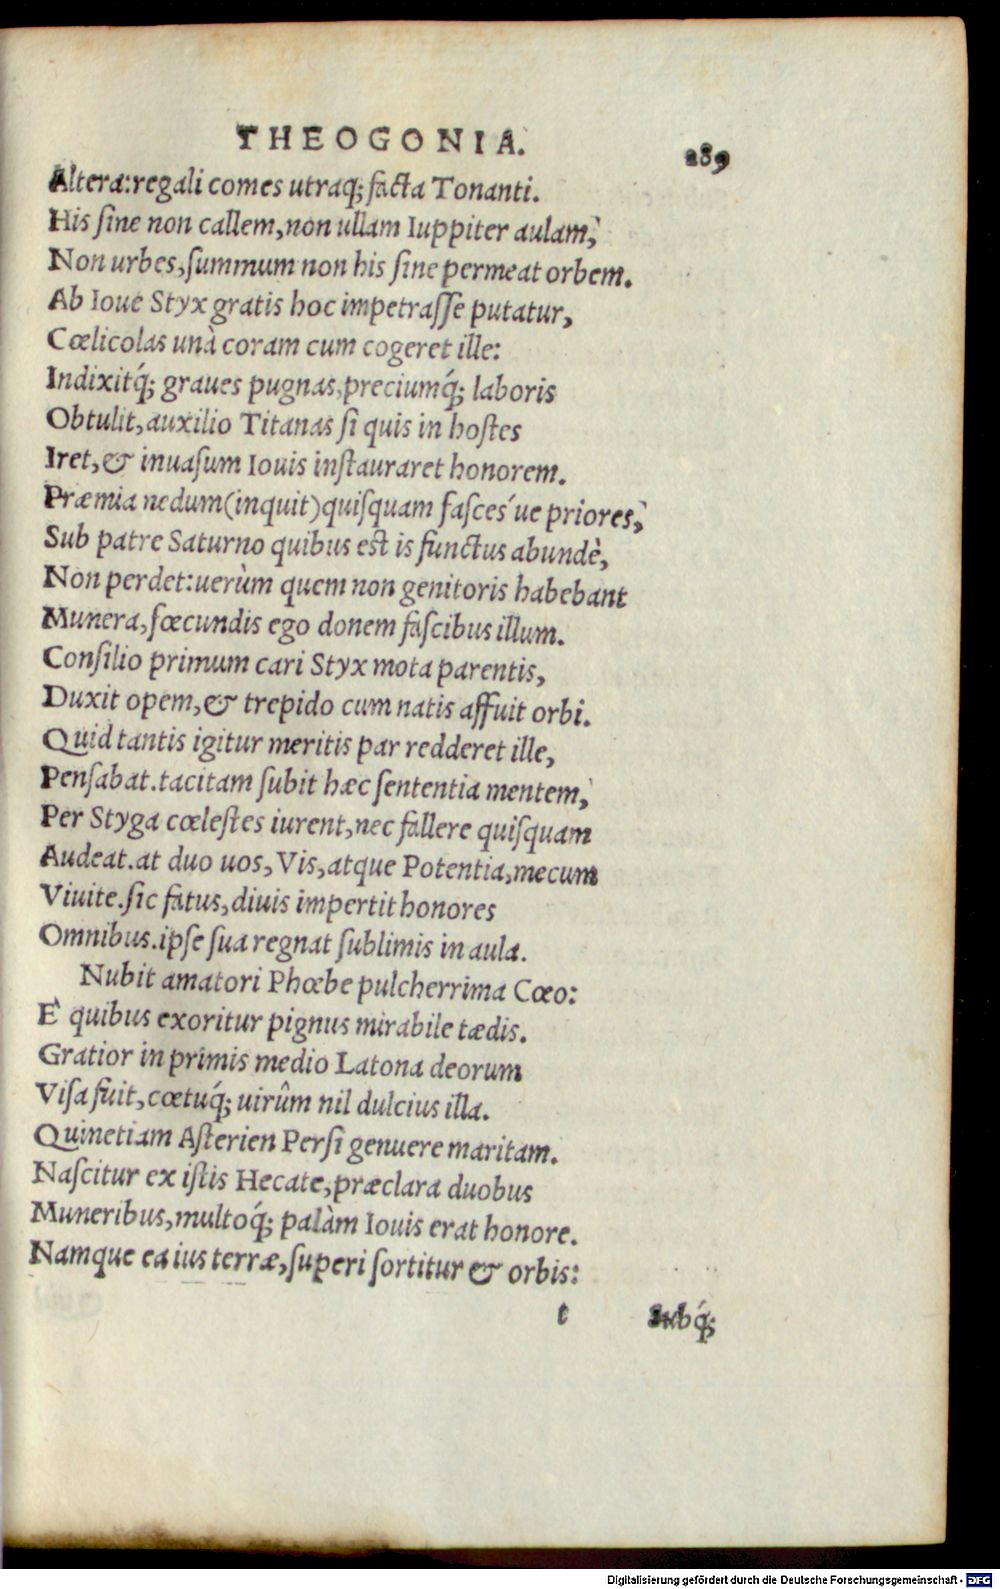 THEOGONIA. 289
Altera:regali comes utraq; facta Tonanti.
His ſine non callem,non ullam Iuppiter aulam,
Non urbes,ſummum non his ſine permeat orbem.
Ab Ioue Styx gratis hoc impetraſſe putatur,
Cœlicolas unà coram cum cogeret ille:
Indixitq́; graues pugnas,preciumq́; laboris
Obtulit,auxilio Titanas ſi quis in hoſtes
Iret,& inuaſum Iouis inſtauraret honorem.
Præmia nedum(inquit)quiſquam faſces ́ue priores,
Sub patre Saturno quibus eſt is functus abundè,
Non perdet:uerùm quem non genitoris habebant
Munera,fœcundis ego donem faſcibus illum.
Conſilio primum cari Styx mota parentis,
Duxit opem,& trepido cum natis affuit orbi.
Quid tantis igitur meritis par redderet ille,
Penſabat.tacitam ſubit hæc ſententia mentem,
Per Styga cœleſtes iurent,nec fallere quiſquam
Audeat.at duo uos,Vis,atque Potentia,mecum
Viuite.ſic fatus,diuis impertit honores
Omnibus.ipſe ſua regnat ſublimis in aula.
Nubit amatori Phœbe pulcherrima Cœo:
E` quibus exoritur pignus mirabile tædis.
Gratior in primis medio Latona deorum
Viſa fuit,cœtuq́; uirûm nil dulcius illa.
Quinetiam Aſterien Perſi genuere maritam.
Naſcitur ex iſtis Hecate,præclara duobus
Muneribus,multoq́; palàm Iouis erat honore.
Namque ea ius terræ,ſuperi ſortitur & orbis:
t Subq́;
Digitalisierung gefördert durch die Deutsche Forschungsgemeinschaft - DFG